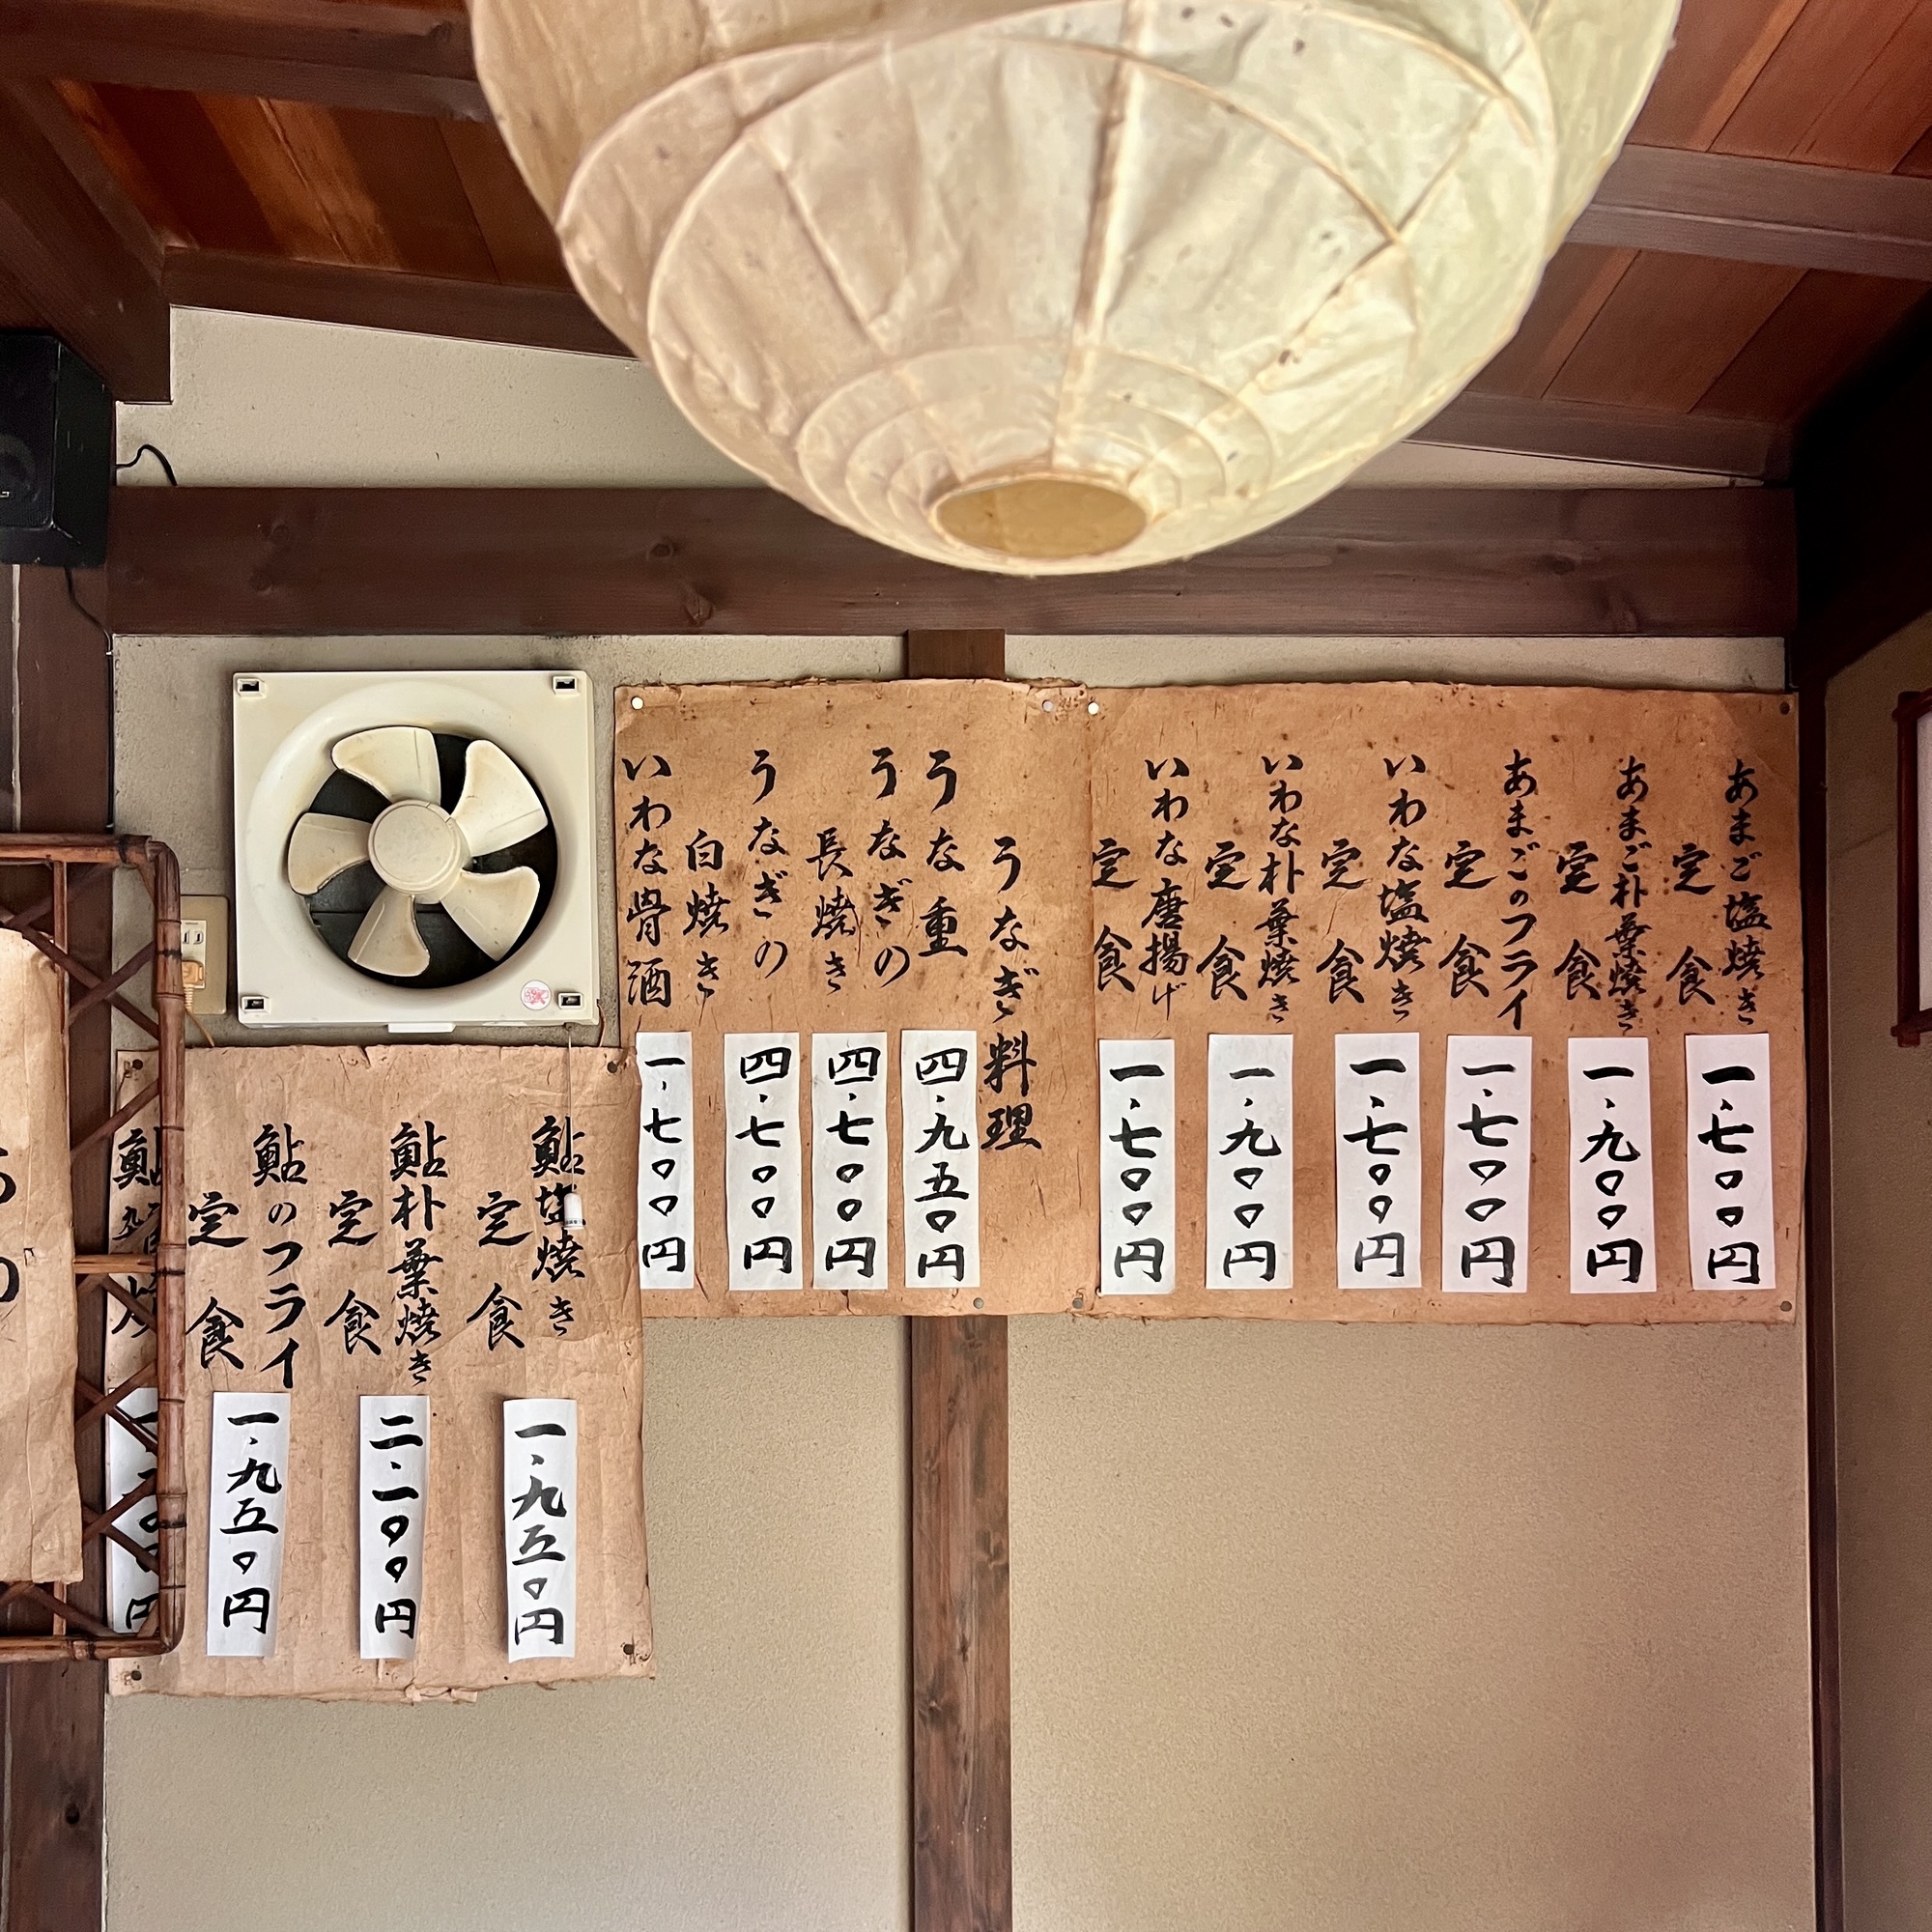 あまご塩焼き
定食
一、七〇〇円
あまご朴葉焼き
定食
一、九〇〇円
あまごのフライ
定食
一、七〇〇円
いわな塩焼き
定食
一、七〇〇円
いわな朴葉焼き
定食
一、九〇〇円
いわな唐揚げ
定食
一、七〇〇円
うなぎ料理
うな重
四、九五〇円
うなぎの
長焼き
四、七〇〇円
うなぎの
白焼き
四、七〇〇円
いわな骨酒
一、七〇〇円
鮎塩焼き
定食
一、九五〇円
鮎朴葉焼き
定食
二、一〇〇円
鮎のフライ
定食
一、九五〇円
鮎